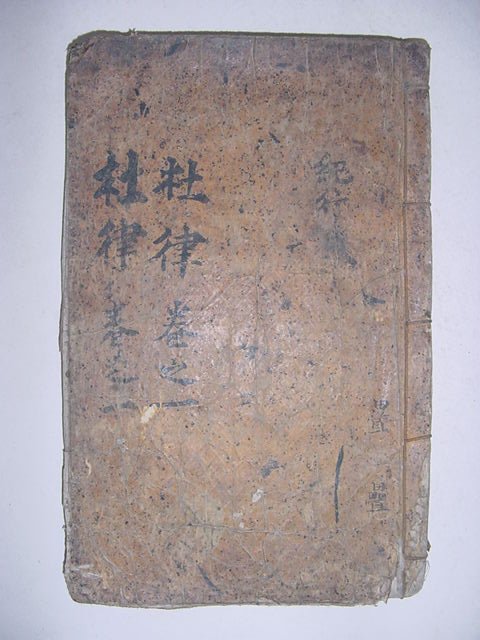 紀行
杜律 卷之一
杜律 卷之一